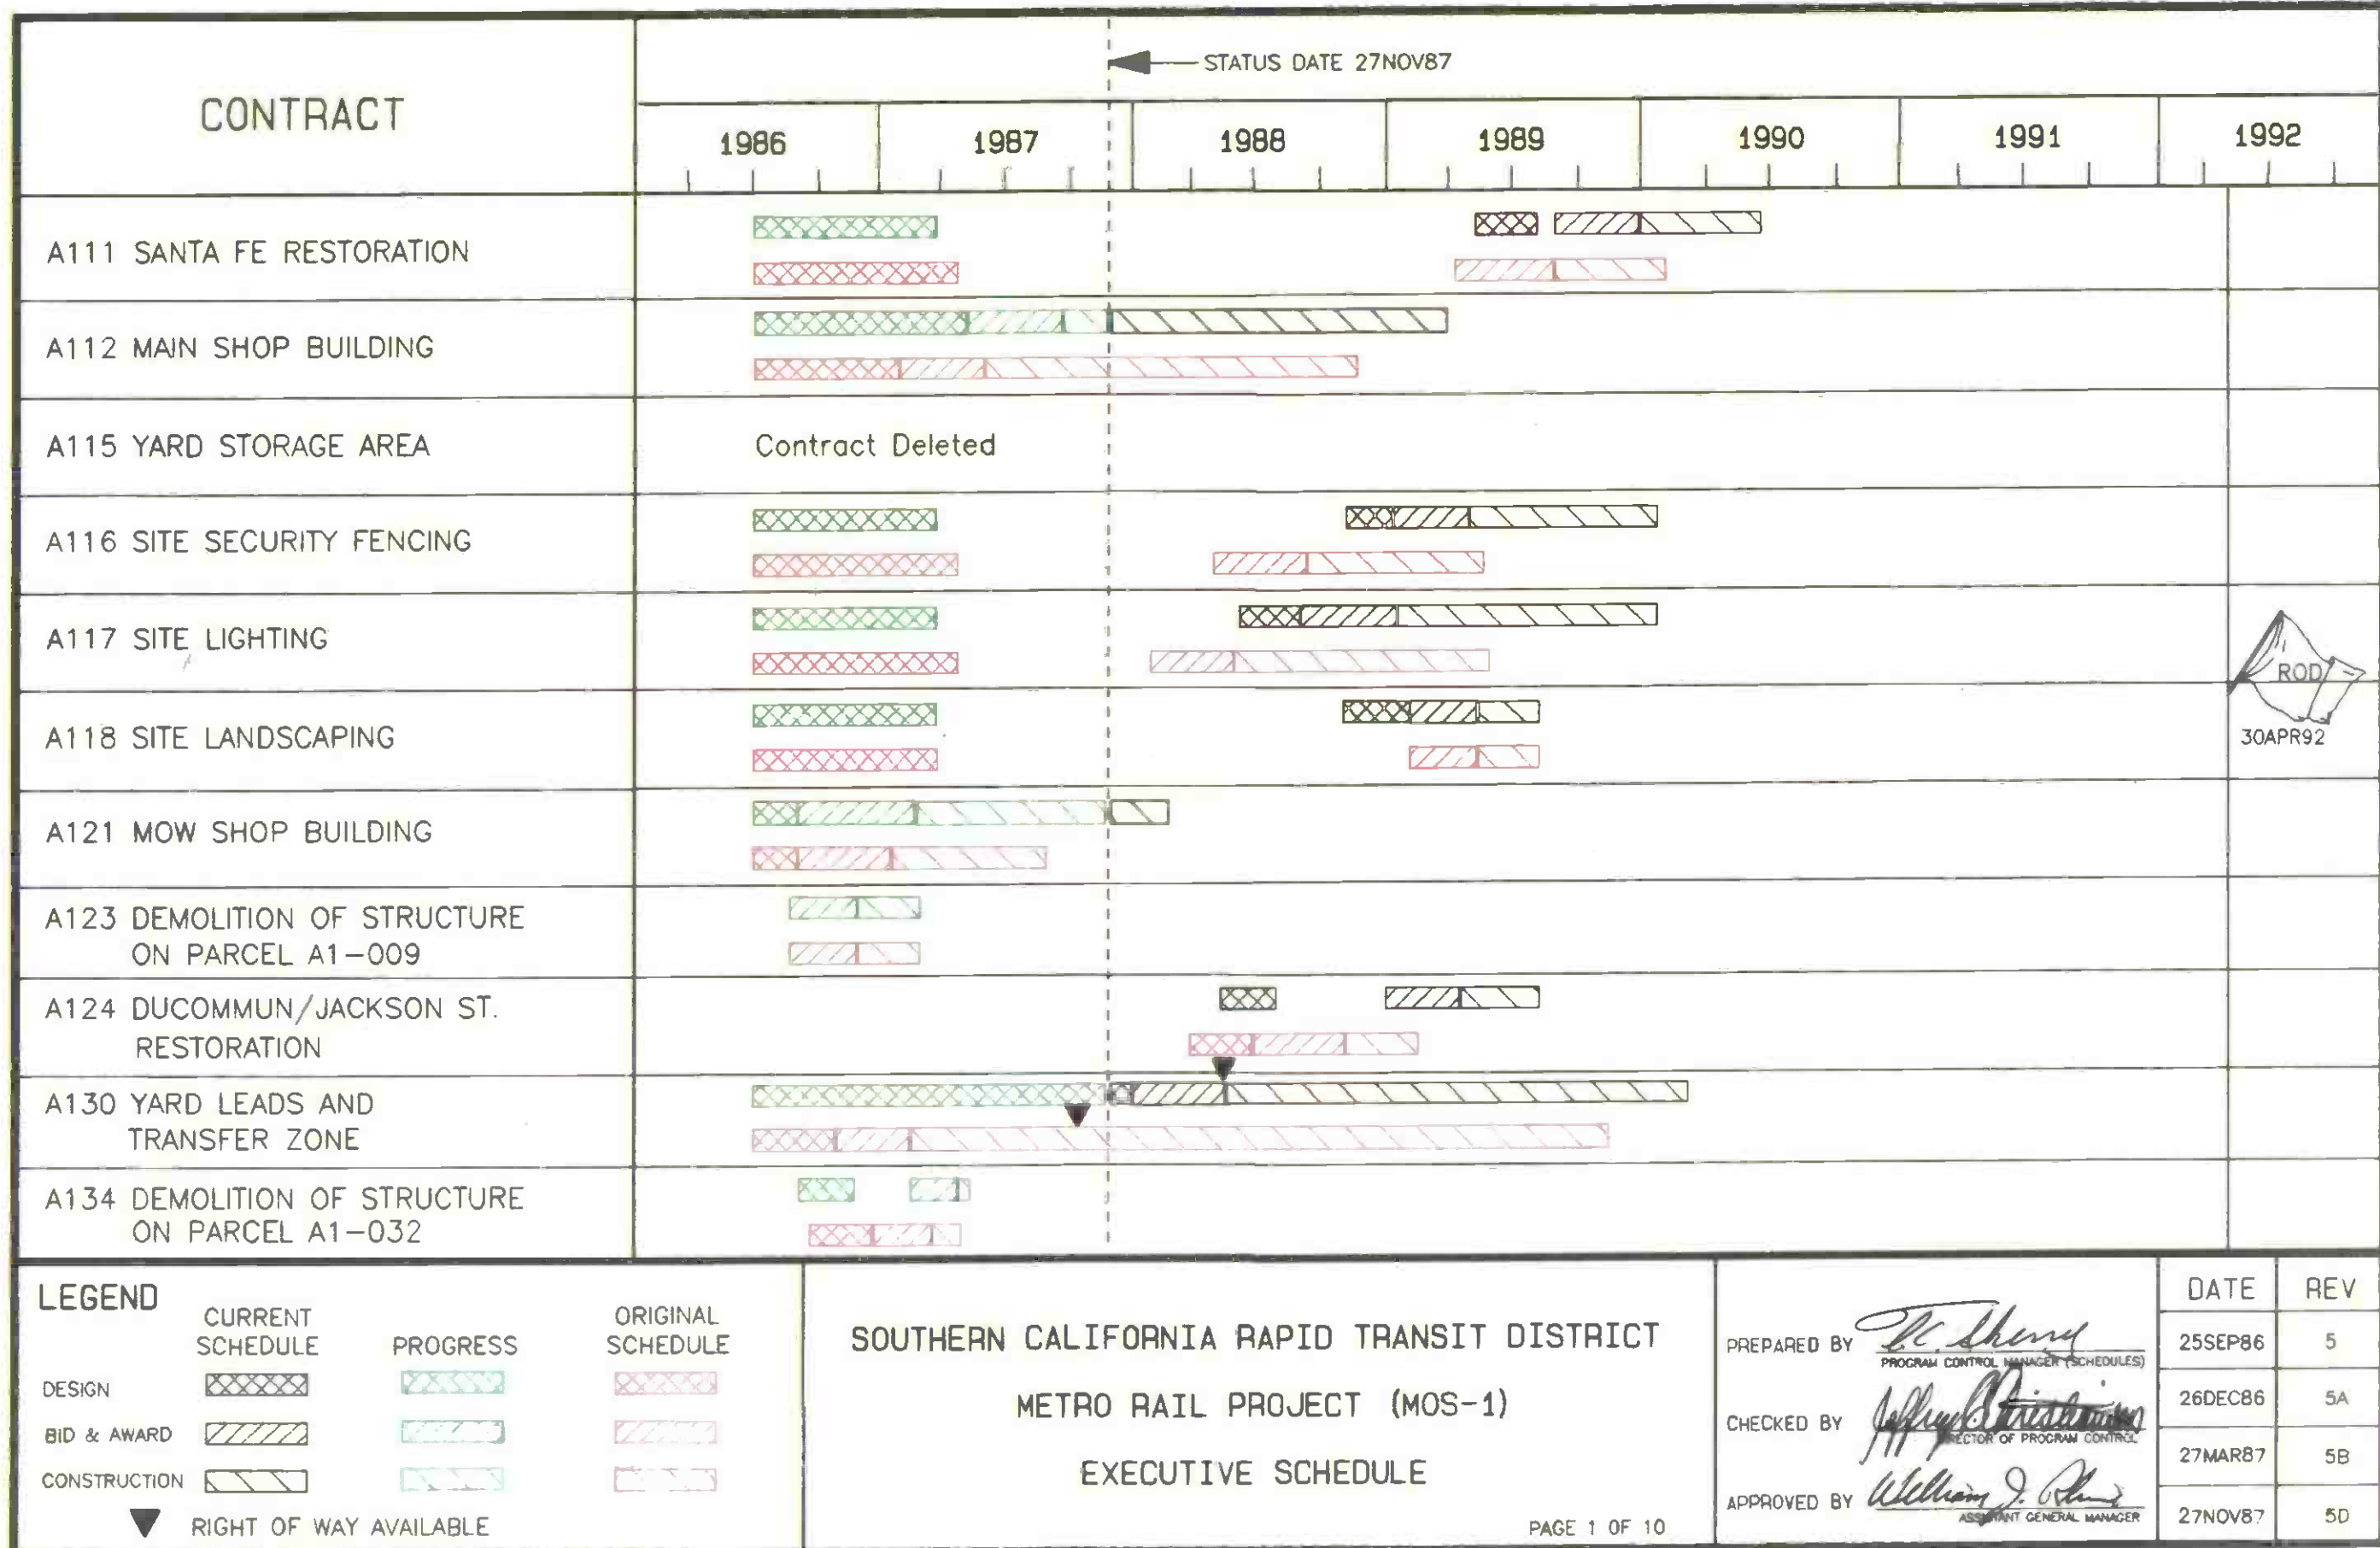 STATUS DATE 27NOV87
CONTRACT
1986 1987 1988 1989 1990 1991 1992
A111 SANTA FE RESTORATION
A112 MAIN SHOP BUILDING
A115 YARD STORAGE AREA Contract Deleted
A116 SITE SECURITY FENCING
A117 SITE LIGHTING
A118 SITE LANDSCAPING
ROD
30APR92
A121 MOW SHOP BUILDING
A123 DEMOLITION OF STRUCTURE
ON PARCEL A1-009
A124 DUCOMMUN/JACKSON ST.
RESTORATION
A130 YARD LEADS AND
TRANSFER ZONE
A134 DEMOLITION OF STRUCTURE
ON PARCEL A1-032
LEGEND
CURRENT
SCHEDULE
PROGRESS
ORIGINAL
SCHEDULE
DESIGN
BID & AWARD
CONSTRUCTION
RIGHT OF WAY AVAILABLE
SOUTHERN CALIFORNIA RAPID TRANSIT DISTRICT
METRO RAIL PROJECT (MOS-1)
EXECUTIVE SCHEDULE
PAGE 1 OF 10
PREPARED BY
PROGRAM CONTROL MANAGER (SCHEDULES)
CHECKED BY
OF PROGRAM CONTROL
APPROVED BY
ASSISTANT GENERAL MANAGER
DATE REV
25SEP86 5
26DEC86 5A
27MAR87 5B
27NOV87 5D